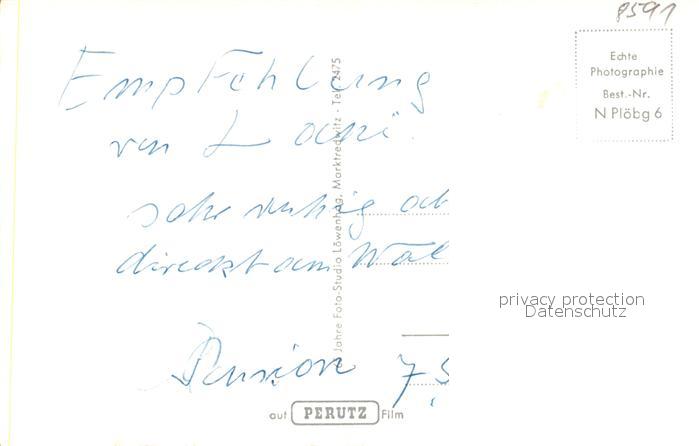 8591
Echte
Photographie
Best.-Nr.
N Plöbg 6
Empfehlung
von
sehr ruhig
direkt am Wal
Jahre Foto-Studio Löwenhag, Marktredwitz · Tel. 2475
privacy protection
Datenschutz
Pension 7
auf PERUTZ Film